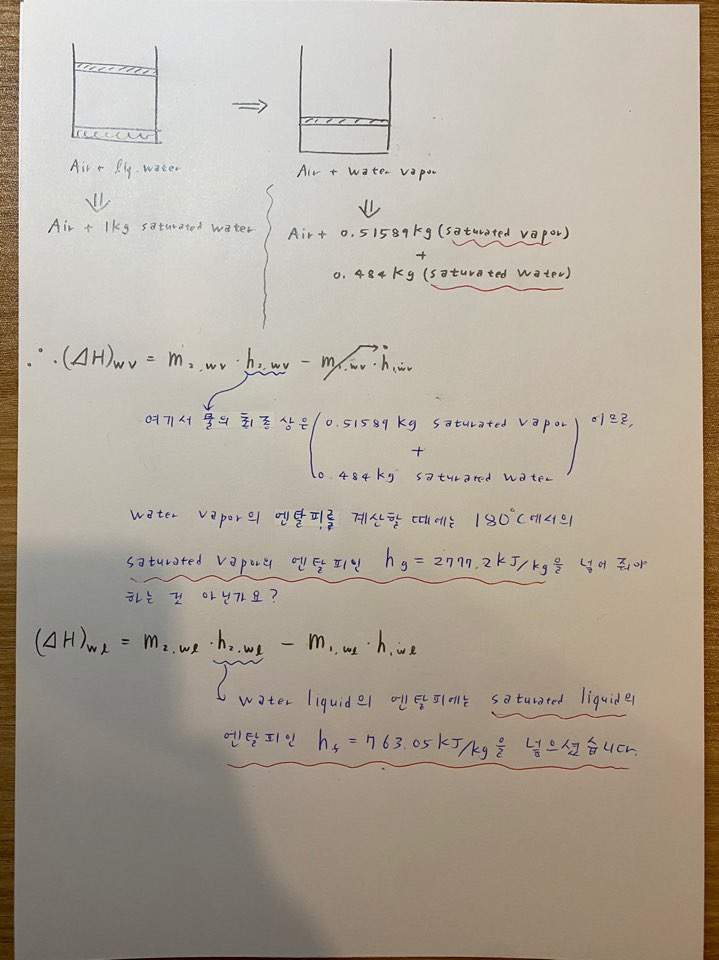 Air + liq. water
Air + water vapor
Air + 1kg saturated water
Air + 0.51589kg (saturated vapor)
+
0.484kg (saturated water)
∴ (ΔH)wv = m2,wv · h2,wv - m1,wv · h1,wv
여기서 물의 최종 상은 (0.51589 kg saturated vapor
+
0.484kg saturated water) 이므로,
water vapor의 엔탈피를 계산할 때에는 180°C에서의
saturated vapor의 엔탈피인 hg = 2777.2kJ/kg을 넣어 줘야
하는 것 아닌가요?
(ΔH)wl = m2,wl · h2,wl - m1,wl · h1,wl
water liquid의 엔탈피에는 saturated liquid의
엔탈피인 hf = 763.05kJ/kg을 넣으셨습니다.